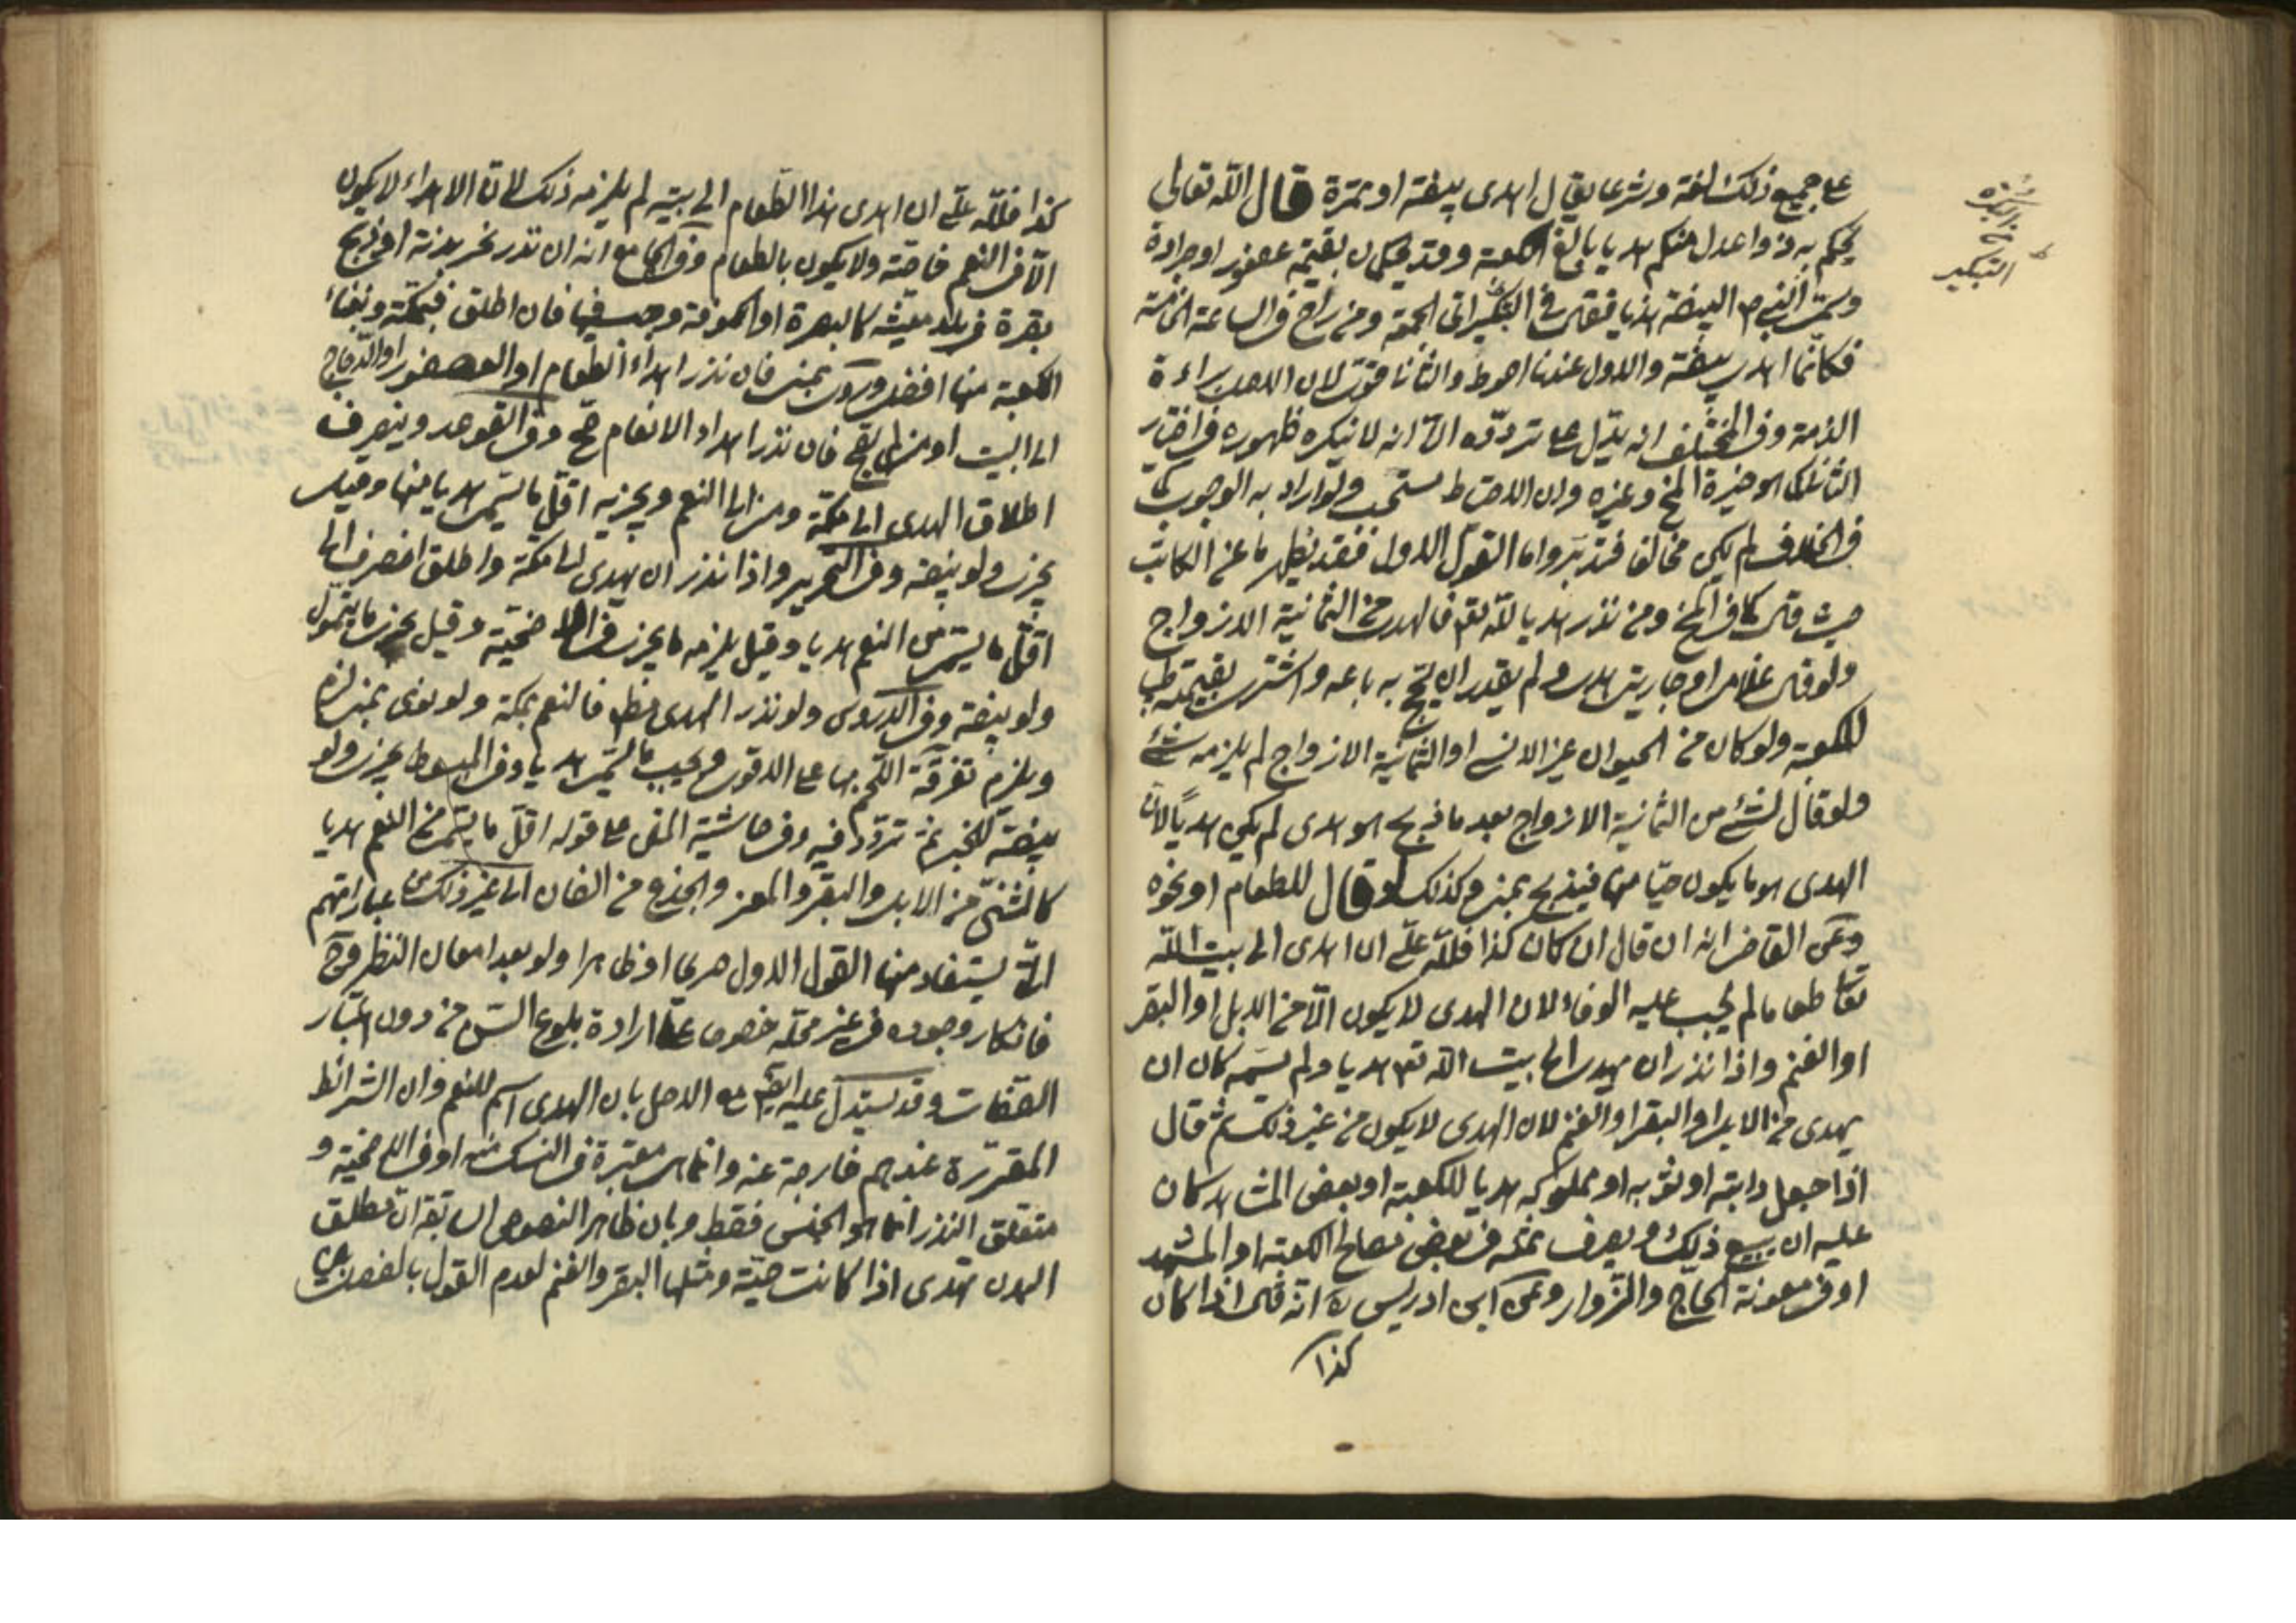 على جميع ذلك لغة وشرعا يقال اهدى بيضة او تمرة قال الله تعالى
يحكم به ذوا عدل منكم هديا بالغ الكعبة وقد يحكمان بقيمة عصفور او جرادة
وسمى النبى ص البيضة هديا فقال فى التبكير الى الجمعة ومن راح فى الساعة الخامسة
فكانما اهدى بيضة والاول عندنا احوط والثانى قوى لان الاصل براءة
الذمة وفى المختلف انه يدل على تردده الا انه لا ينكره ظهوره فى اختيار
الثانى كما هو خيرة الشيخ وغيره وان الاحتياط مستحب ولو اراد به الوجوب كما
فى الخلاف لم يكن مخالفا فتدبر واما القول الاول فقد يظهر ما عن الكاتب
حيث قال كما فى المخ ومن نذر هديا لله تعم فالهدى من الثمانية الازواج
ولو قال غلامى او جاريتى هدى ولم يقدر ان يحج به باعه واشترى بقيمته طيب
للكعبة ولو كان من الحيوان غير الانس او الثمانية الازواج لم يلزمه شئ
ولو قال لشئ من الثمانية الازواج بعد ما ذبح هو هدى لم يكن هديا لان
الهدى هو ما يكون حيا منها فيذبح بمنى وكذلك لو قال للطعام او نحوه
وعن القاضى انه ان قال ان كان كذا فلله على ان اهدى الى بيت الله
تعالى طعاما لم يجب عليه الوفاء لان الهدى لا يكون الا من الابل او البقر
او الغنم واذا نذر ان يهدى الى بيت الله تعم هديا ولم يسمه كان ان
يهدى من الابل او البقر او الغنم لان الهدى لا يكون من غير ذلك ثم قال
اذا جعل دابته او ثوبه او مملوكه هديا للكعبة او بعض المشاهد كان
عليه ان يبيع ذلك ويصرف ثمنه فى بعض مصالح الكعبة او المشهد
او فى معونة الحاج والزوار وعن ابن ادريس انه قال اذا كان
كذا
التبكير
كذا فلله على ان اهدى هذا الطعام الى بيته لم يلزمه ذلك لان الاهداء لا يكون
الا فى النعم خاصة ولا يكون بالطعام وفى الجامع انه ان نذر نحر بدنة او ذبح
بقرة فى بلد معينه كالبصرة او الكوفة وجب فيها فان اطلق فبمكة وبفناء
الكعبة منها افضل وروى بمنى فان نذر اهداء الطعام او العصفور او الدجاج
الى البيت او منى لم يصح فان نذر اهداء الانعام صح وفى القواعد وينصرف
اطلاق الهدى الى مكة ومنى الى النعم ويجزيه اقل ما يسمى هديا منها وقيل
يجزى ولو بيضة وفى التحرير واذا نذر ان يهدى الى مكة واطلق انصرف الى
اقل ما يسمى من النعم هديا وقيل يلزمه ما يجزى فى الاضحية وقيل يجزى ما يتمول
ولو بيضة وفى الدروس ولو نذر الهدى مطلقا فالنعم بمكة ولو نوى بمنى لزم
ويلزم تفرقة اللحم بها على الاقوى ويجب ما يسمى هديا وفى المبسوط يجزى ولو
بيضة للخبر ثم تردد فيه وفى حاشية المتن على قوله اقل ما يسمى من النعم هديا
كالثنى من الابل والبقر والمعز والجذع من الضان الى غير ذلك من عباراتهم
التى يستفاد منها القول الاول صريحا او ظاهرا ولو بعد امعان النظر
فانكار وجوده فى غير محله خصوصا ارادة بلوغ السن من دون اعتبار
الصفات وقد يستدل عليه الاصل بان الهدى اسم للنعم وان الشرائط
المقررة عندهم خارجة عنه وانما هى معتبرة فى النسك منه او فى الاضحية و
متعلق النذر انما هو الجنس فقط وبان ظاهر النصوص السابقة ان مطلق
البدن تهدى اذا كانت حية ومثلها البقر والغنم لعدم القول بالفصل